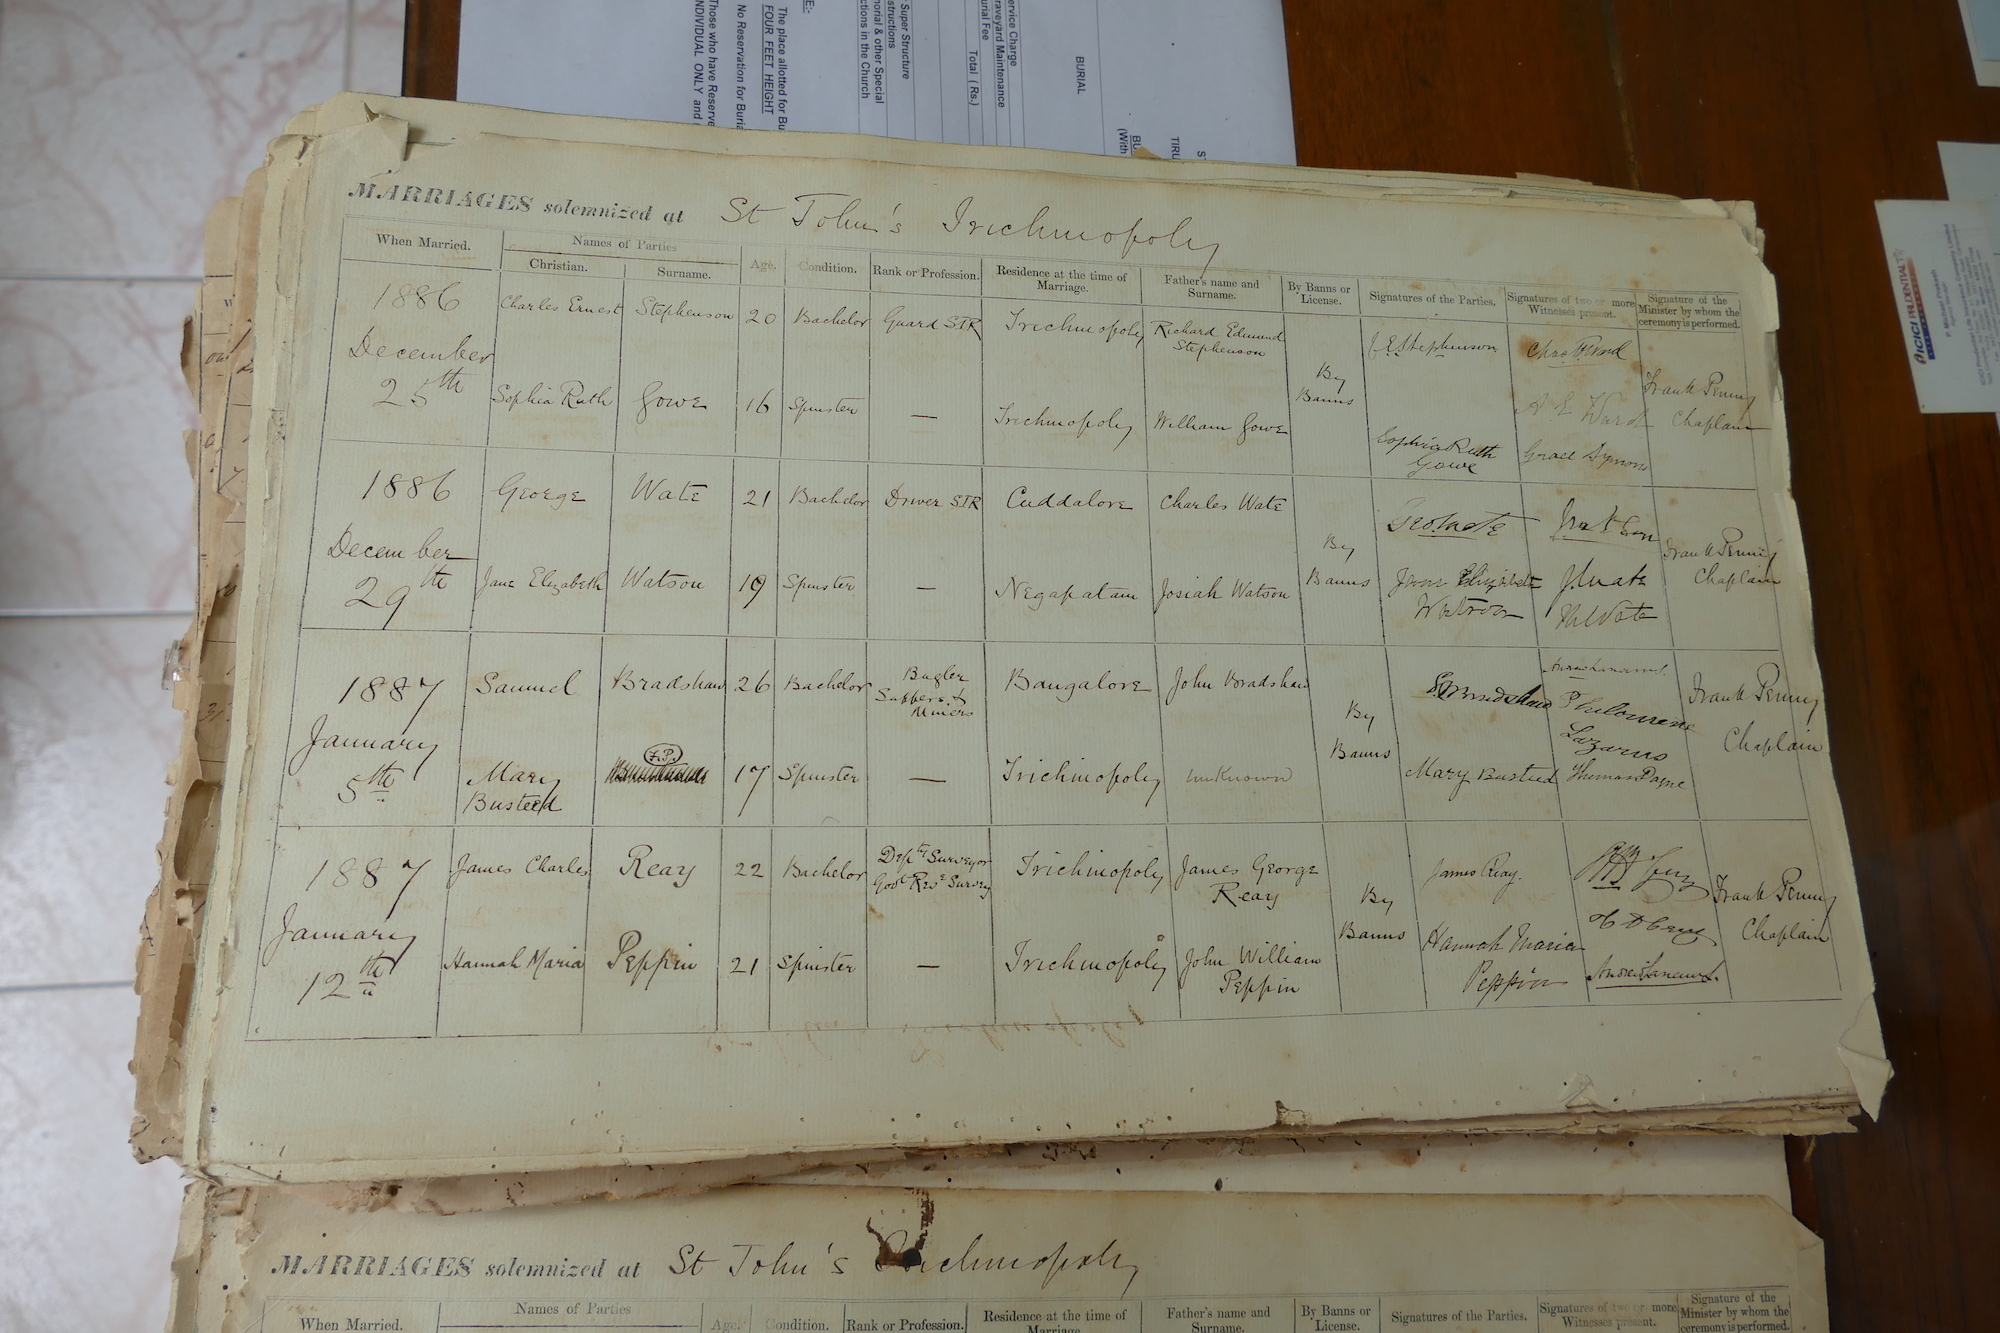 Super Structure
structions
orial & other Special
ctions in the Church
ervice Charge
raveyard Maintenance
urial Fee
Total (Rs.)
BURIAL
The place allotted for Bu
FOUR FEET HEIGHT
No Reservation for Buria
Those who have Reserve
NDIVIDUAL ONLY and
(With
TIRU
ICICI PRUDENTIAL
MARRIAGES solemnized at St John's Trichinopoly
When Married. Names of Parties Age. Condition. Rank or Profession. Residence at the time of Marriage. Father's name and Surname. By Banns or License. Signatures of the Parties. Signatures of two or more Witnesses present. Signature of the Minister by whom the ceremony is performed.
Christian. Surname.
1886 Charles Ernest Stephenson 20 Bachelor Guard SIR Trichinopoly Richard Edmund Stephenson
December By Banns Frank Penny Chaplain
25th Sophia Ruth Gowe 16 Spinster — Trichinopoly William Gowe Sophia Ruth Gowe
1886 George Wate 21 Bachelor Driver SIR Cuddalore Charles Wate
December By Banns Frank Penny Chaplain
29th Jane Elizabeth Watson 19 Spinster — Negapatam Josiah Watson Jane Elizabeth Watson
1887 Samuel Bradshaw 26 Bachelor Bugler Sappers & Miners Bangalore John Bradshaw S Bradshaw Philomene Lazarus
January By Banns Frank Penny Chaplain
5th Mary Busteed F.P. 17 Spinster — Trichinopoly unknown Mary Busteed Thomas Payne
1887 James Charles Reay 22 Bachelor Depty Surveyor Govt Reve Survey Trichinopoly James George Reay James Reay.
January By Banns Frank Penny Chaplain
12th Hannah Maria Peppin 21 Spinster — Trichinopoly John William Peppin Hannah Maria Peppin
MARRIAGES solemnized at St John's Trichinopoly
When Married. Names of Parties Age. Condition. Rank or Profession. Residence at the time of Marriage. Father's name and Surname. By Banns or License. Signatures of the Parties. Signatures of two or more Witnesses present. Signature of the Minister by whom the ceremony is performed.